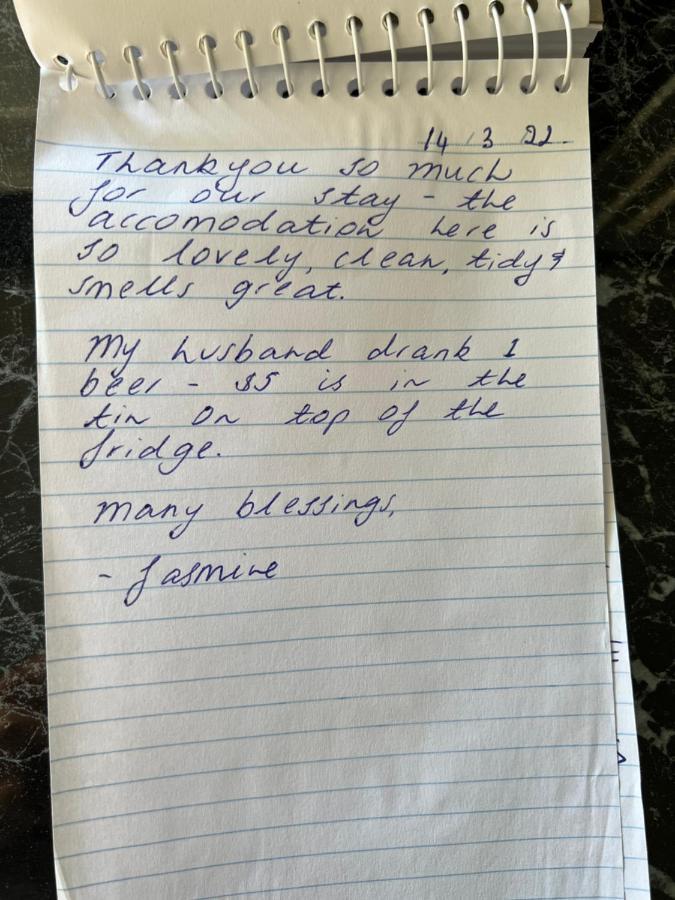 14 3 22
Thankyou so much
for our stay - the
accomodation here is
so lovely, clean, tidy &
smells great.
My husband drank 1
beer - $5 is in the
tin on top of the
fridge.
Many blessings,
- Jasmine